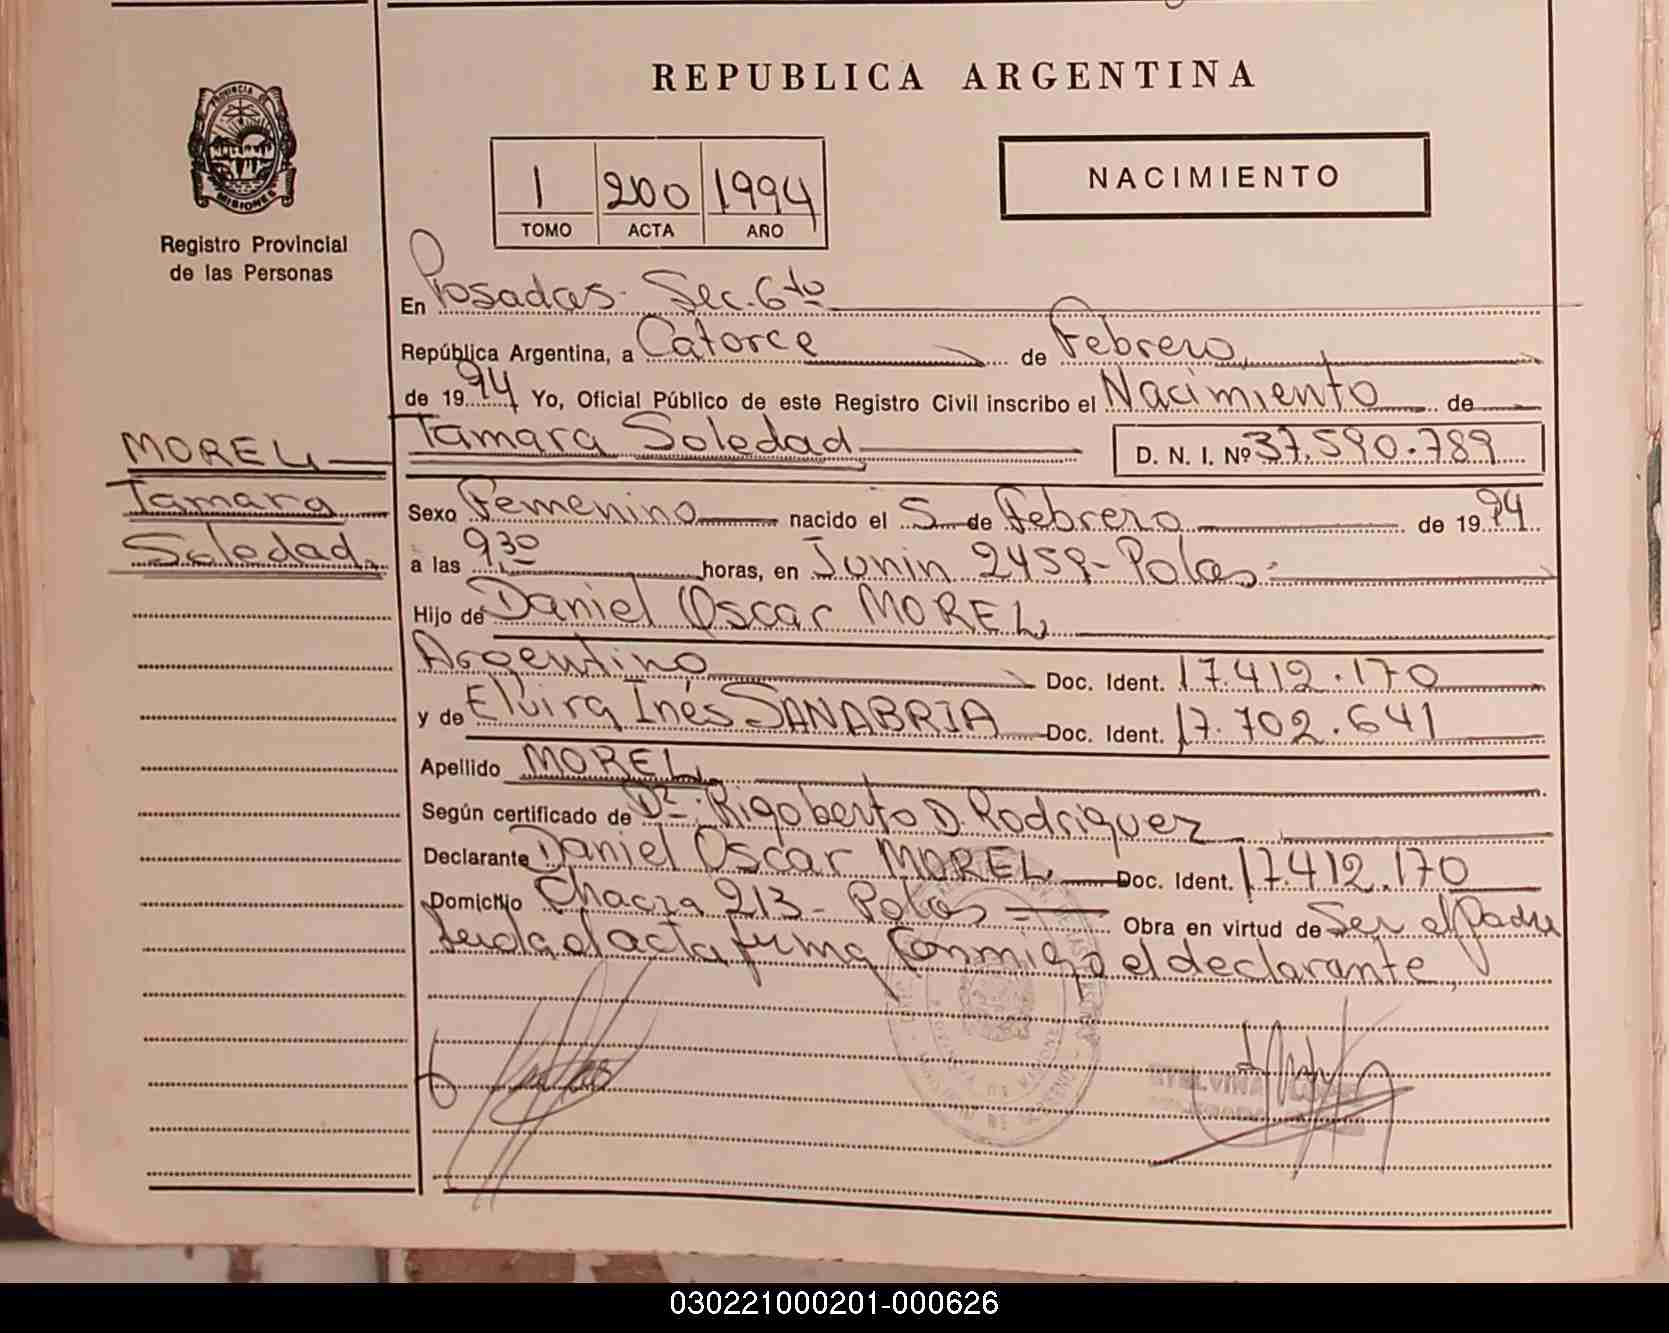 REPUBLICA ARGENTINA
PROVINCIA DE
MISIONES
Registro Provincial
de las Personas
1 200 1994
TOMO ACTA AÑO
NACIMIENTO
En Posadas. Sec. 6to
República Argentina, a Catorce de Febrero
de 1994 Yo, Oficial Público de este Registro Civil inscribo el Nacimiento de
Tamara Soledad D. N. I. Nº 37.590.789
MOREL
Tamara
Soledad
Sexo Femenino nacido el 5 de Febrero de 1994
a las 9 30 horas, en Junin 2459 - Pdas.
Hijo de Daniel Oscar MOREL
Argentino Doc. Ident. 17.412.170
y de Elvira Inés SANABRIA Doc. Ident. 17.702.641
Apellido MOREL
Según certificado de Dr. Rigoberto D. Rodriguez
Declarante Daniel Oscar MOREL Doc. Ident. 17.412.170
Domicilio Chacra 213 - Pdas Obra en virtud de Ser el Padre
Leida el acta firma conmigo el declarante,
ETELVINA
030221000201-000626